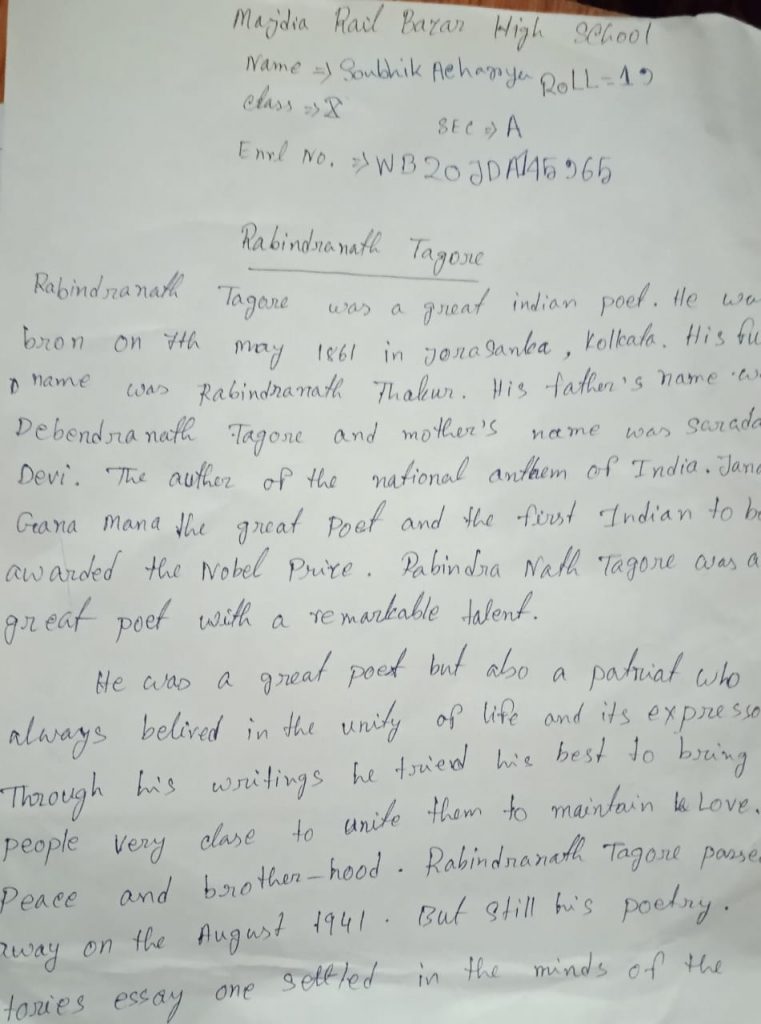 Majdia Rail Bazar High School
Name ⇒ Soubhik Acharyya ROLL = 19
class ⇒ X
SEC ⇒ A
Enrl No. ⇒ WB20JDA145965
Rabindranath Tagore
Rabindranath Tagore was a great indian poet. He wa
bron on 7th may 1861 in jorasanka, Kolkata. His fu
name was Rabindranath Thakur. His father's name w
Debendranath Tagore and mother's name was Sarada
Devi. The auther of the national anthem of India. Jana
Gana Mana the great Poet and the first Indian to be
awarded the Nobel Prize. Rabindra Nath Tagore was a
great poet with a remarkable talent.
He was a great poet but also a patriat who
always belived in the unity of life and its expresso
Through his writings he tried his best to bring
people very close to unite them to maintain Love.
Peace and brother-hood. Rabindranath Tagore passe
away on the August 1941. But still his poetry.
tories essay one settled in the minds of the